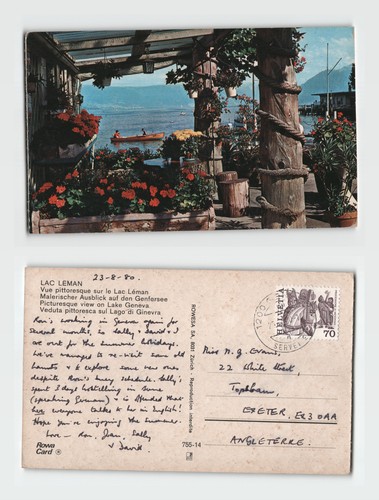 23-8-80.
LAC LEMAN
Vue pittoresque sur le Lac Léman
Malerischer Ausblick auf den Genfersee
Picturesque view on Lake Geneva
Veduta pittoresca sul Lago di Ginevra
Ron's working in Geneva again for
several months, so Sally, David & I
are out for the summer holidays.
We've managed to re-visit some old
haunts & explore some new ones
despite Ron's busy schedule. Sally's
spent 3 days hostelling in
(speaking German) & is offended that
everyone talks to her in English!
Hope you're enjoying the summer.
Love - Ron, Jean, Sally
& David.
Rowa
Card ®
755-14
ROWESA SA, 8031 Zürich - Reproduction interdite
1200
HELVETIA
70
Miss N. J. Evans,
22 White Street,
Topsham,
EXETER, EX3 0AA
ANGLETERRE.